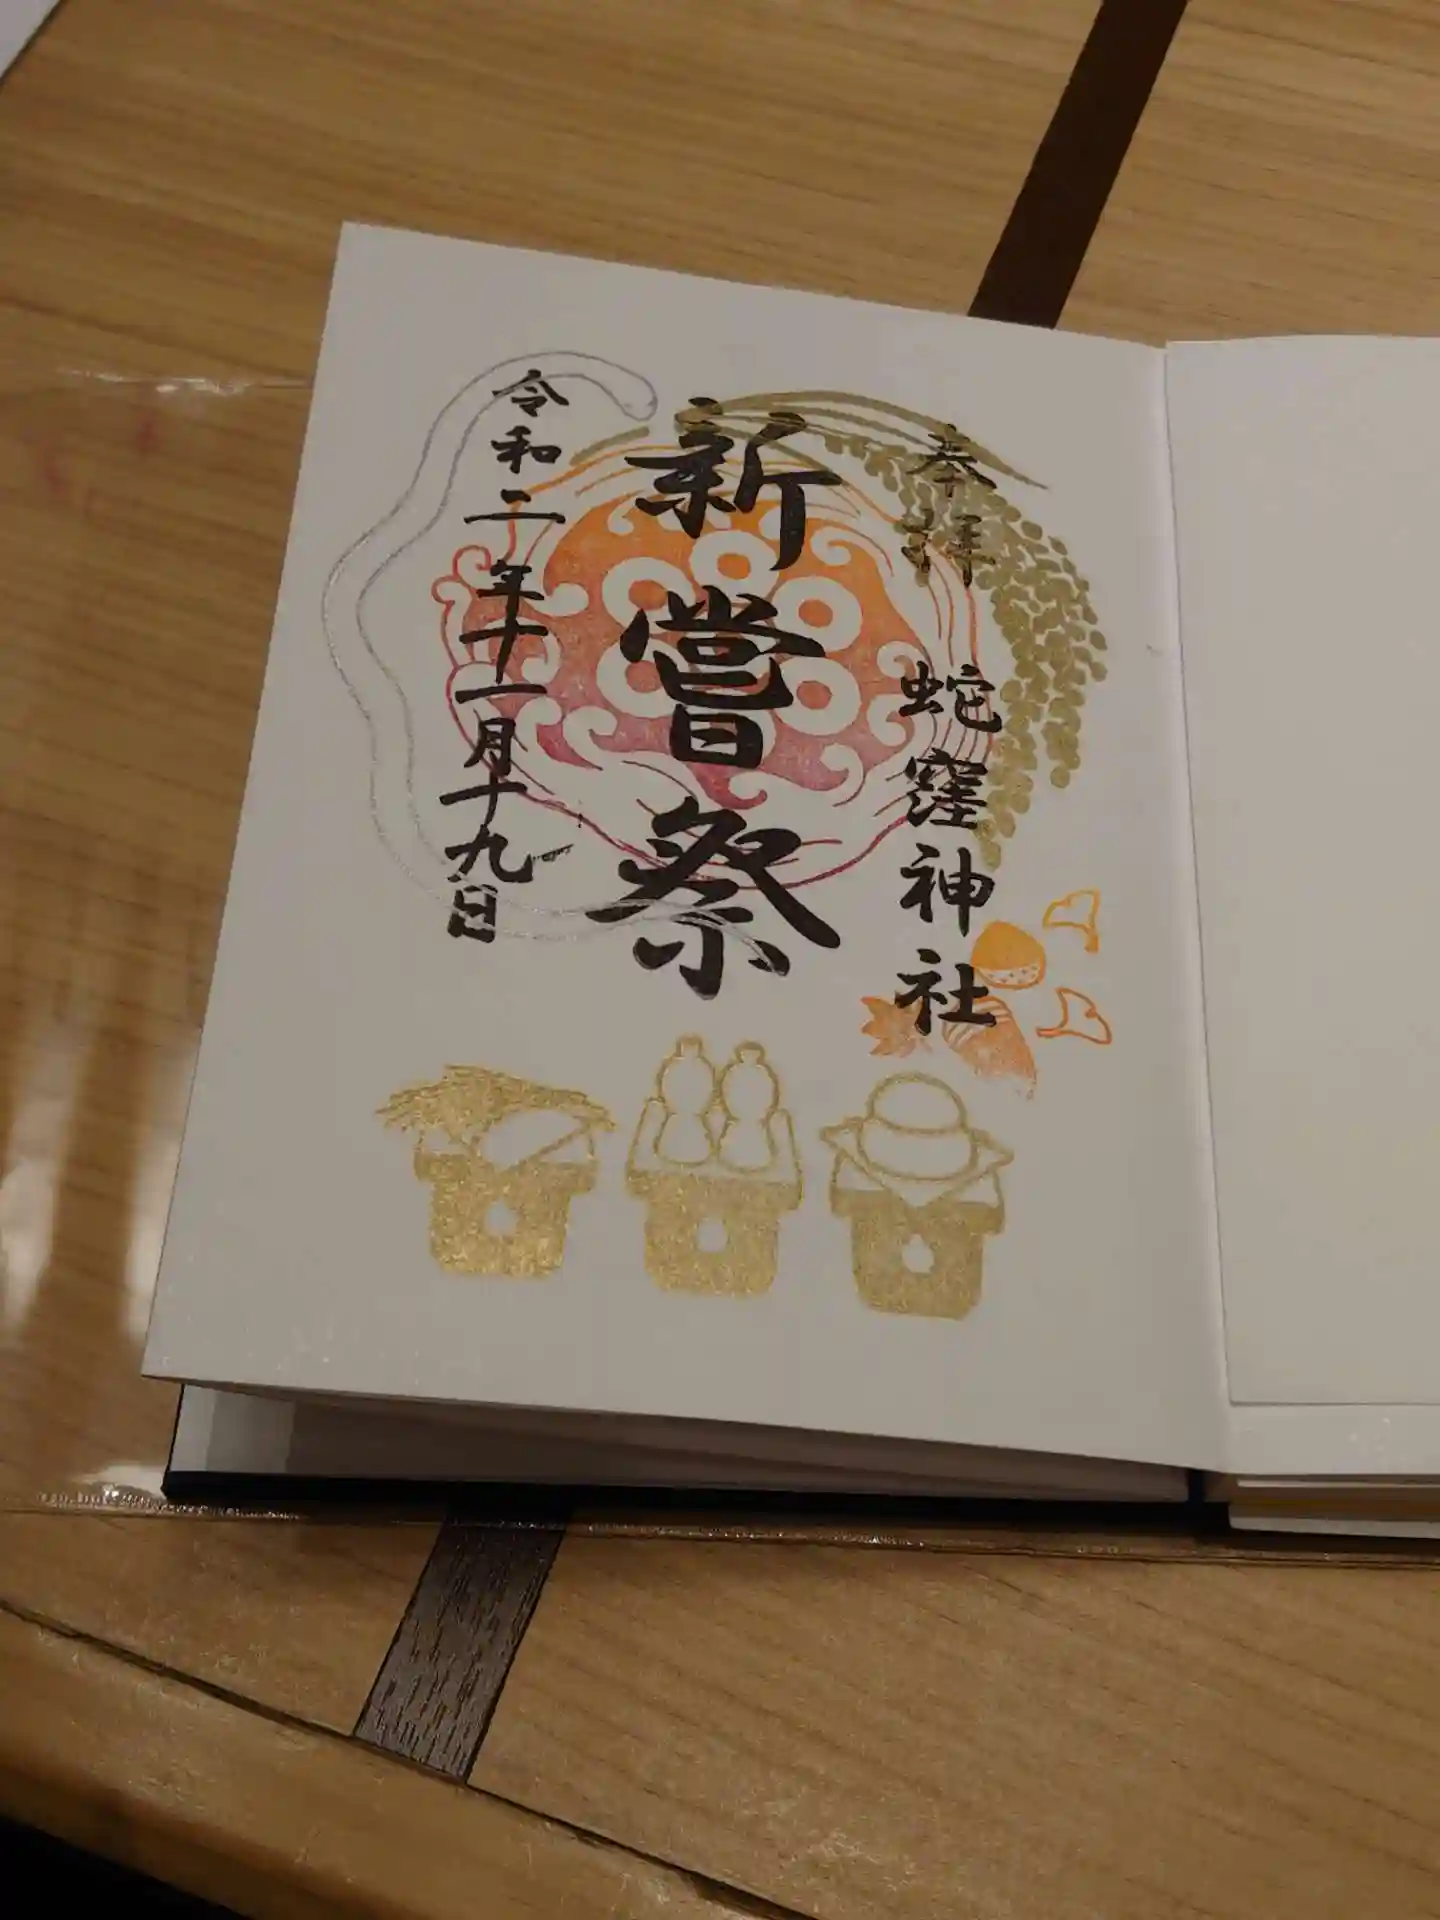 奉拝
蛇窪神社
新嘗祭
令和二年十一月十九日